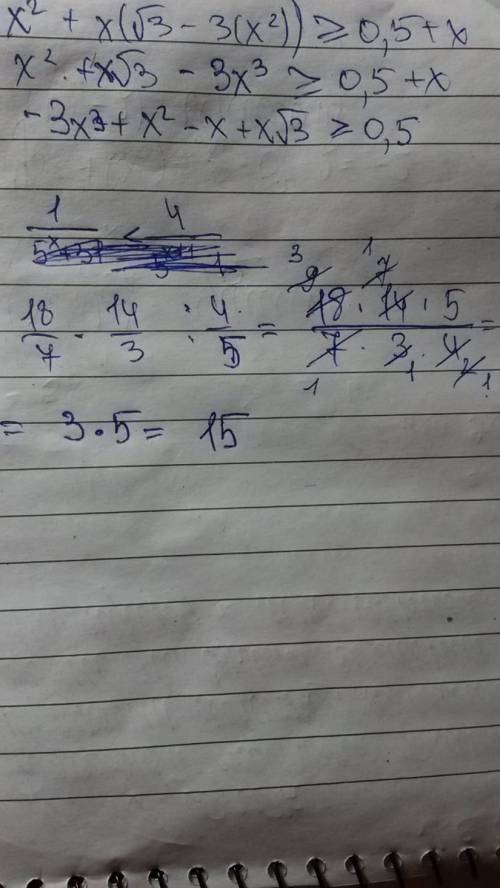 x² + x(√3 - 3(x²)) ≥ 0,5 + x
x² + x√3 - 3x³ ≥ 0,5 + x
-3x³ + x² - x + x√3 ≥ 0,5
1 < 4
3 9 1 7
18/7 · 14/3 : 4/5 = 18 · 14 · 5 / 7 · 3 · 4 =
1 1 2 1
= 3 · 5 = 15